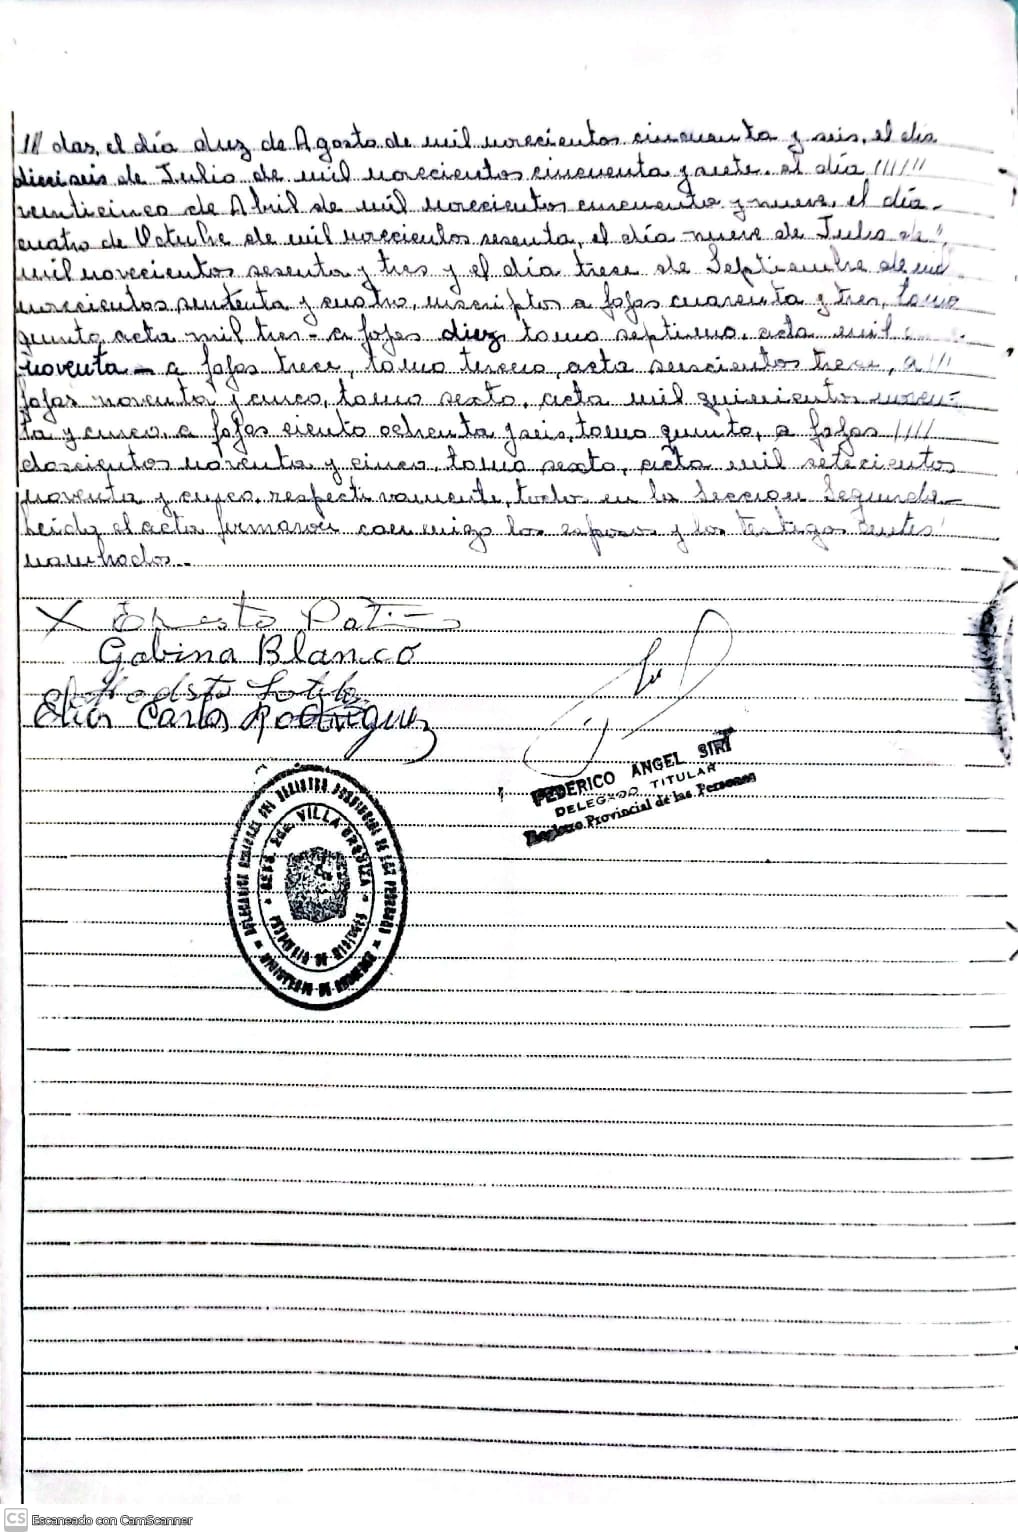 /// das, el día diez de Agosto de mil novecientos cincuenta y seis, el día
dieciseis de Julio de mil novecientos cincuenta y siete, el día //////
veinticinco de Abril de mil novecientos cincuenta y nueve, el día
cuatro de Octubre de mil novecientos sesenta, el día nueve de Julio de
mil novecientos sesenta y tres y el día trece de Septiembre de mil
novecientos sesenta y cuatro, inscriptos a fojas cuarenta y tres, tomo
quinto, acta mil tres - a fojas diez, tomo septimo, acta mil
noventa - a fojas trece, tomo tercero, acta seiscientos trece, a ///
fojas noventa y cinco, tomo sexto, acta mil quinientos noven-
ta y cinco, a fojas ciento ochenta y seis, tomo quinto, a fojas ////
doscientos noventa y cinco, tomo sexto, acta mil setecientos
noventa y cinco, respectivamente, todos en la Seccion Segunda.-
Leida el acta firmaron conmigo los esposos y los testigos antes
nombrados.-
X Ernesto
Gabina Blanco
Elias Carlos Rodriguez
FEDERICO ANGEL SIRI
DELEGADO TITULAR
Registro Provincial de las Personas
VILLA URQUIZA
CS Escaneado con CamScanner